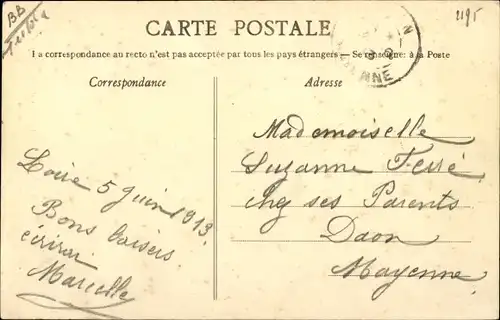 BB
2195
CARTE POSTALE
La correspondance au recto n'est pas acceptée par tous les pays étrangers — Se renseigner à la Poste
Correspondance
Adresse
Loire 5 Juin 1913.
Bons baisers
écrirai
Marcelle
Mademoiselle
Suzanne Ferré
chez ses Parents
Daon
Mayenne